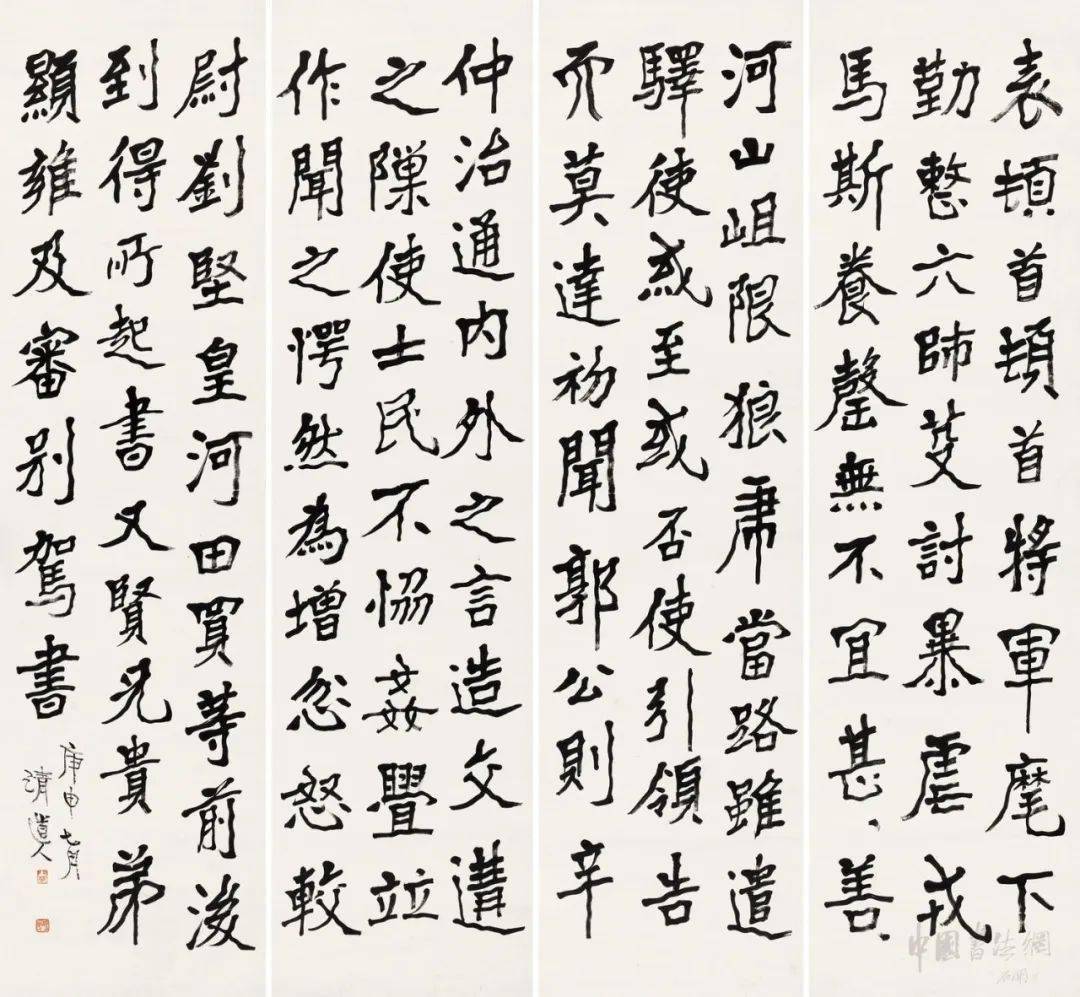 表頓首頓首將軍麾下
勤整六師芟討暴虐戎
馬斯養罄無不宜甚、善、
河山岨限狼虎當路雖遣
驛使或至或否使引領告
而莫達初聞郭公則辛
仲治通內外之言造交遘
之隟使士民不恊姦舋竝
作聞之愕然為增忿怒較
尉劉堅皇河田買等前後
到得所起書又賢兄貴弟
顯雍及審別駕書
庚申七月
清道人
中國書法網